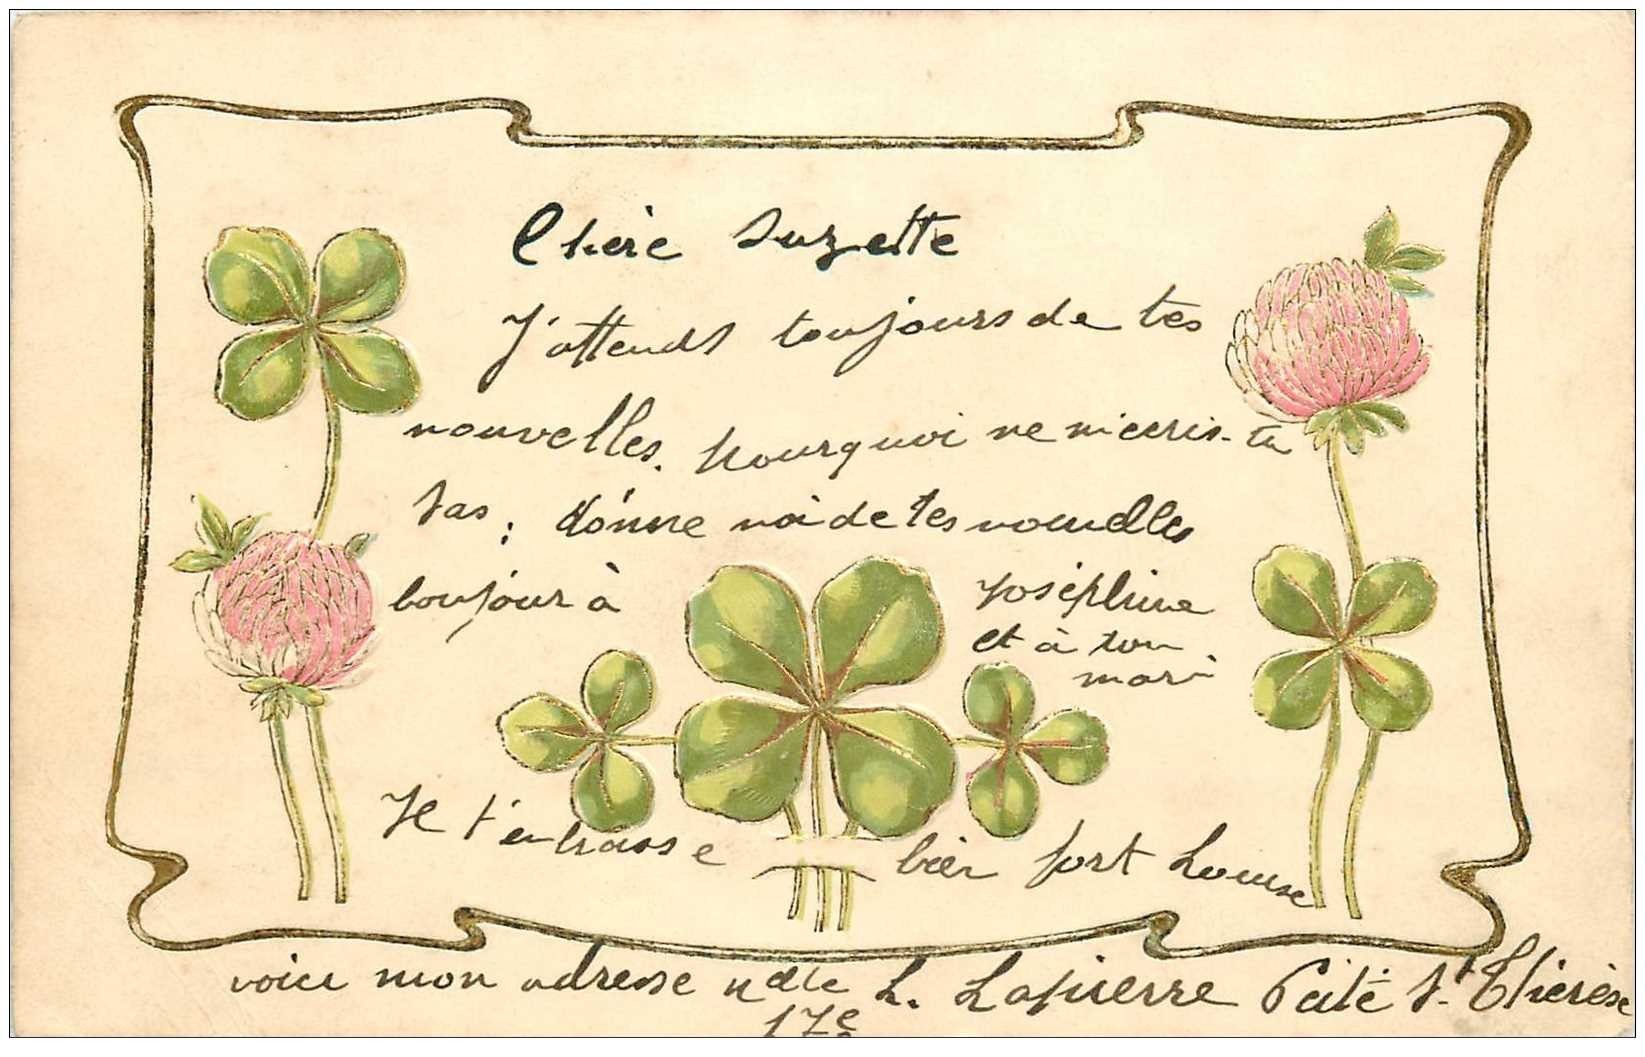 Chère Suzette
J'attends toujours de tes
nouvelles. pourquoi ne m'ecris-tu
pas; donne moi de tes nouvelles
bonjour à Joséphine
et à ton
mari
Je t'embrasse bien fort Louise
voici mon adresse L. Lapierre Cité St Thérèse
17e